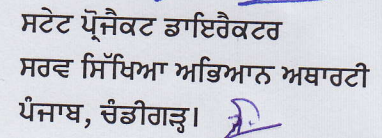 ਸਟੇਟ ਪ੍ਰੋਜੈਕਟ ਡਾਇਰੈਕਟਰ
ਸਰਵ ਸਿੱਖਿਆ ਅਭਿਆਨ ਅਥਾਰਟੀ
ਪੰਜਾਬ, ਚੰਡੀਗੜ੍ਹ।